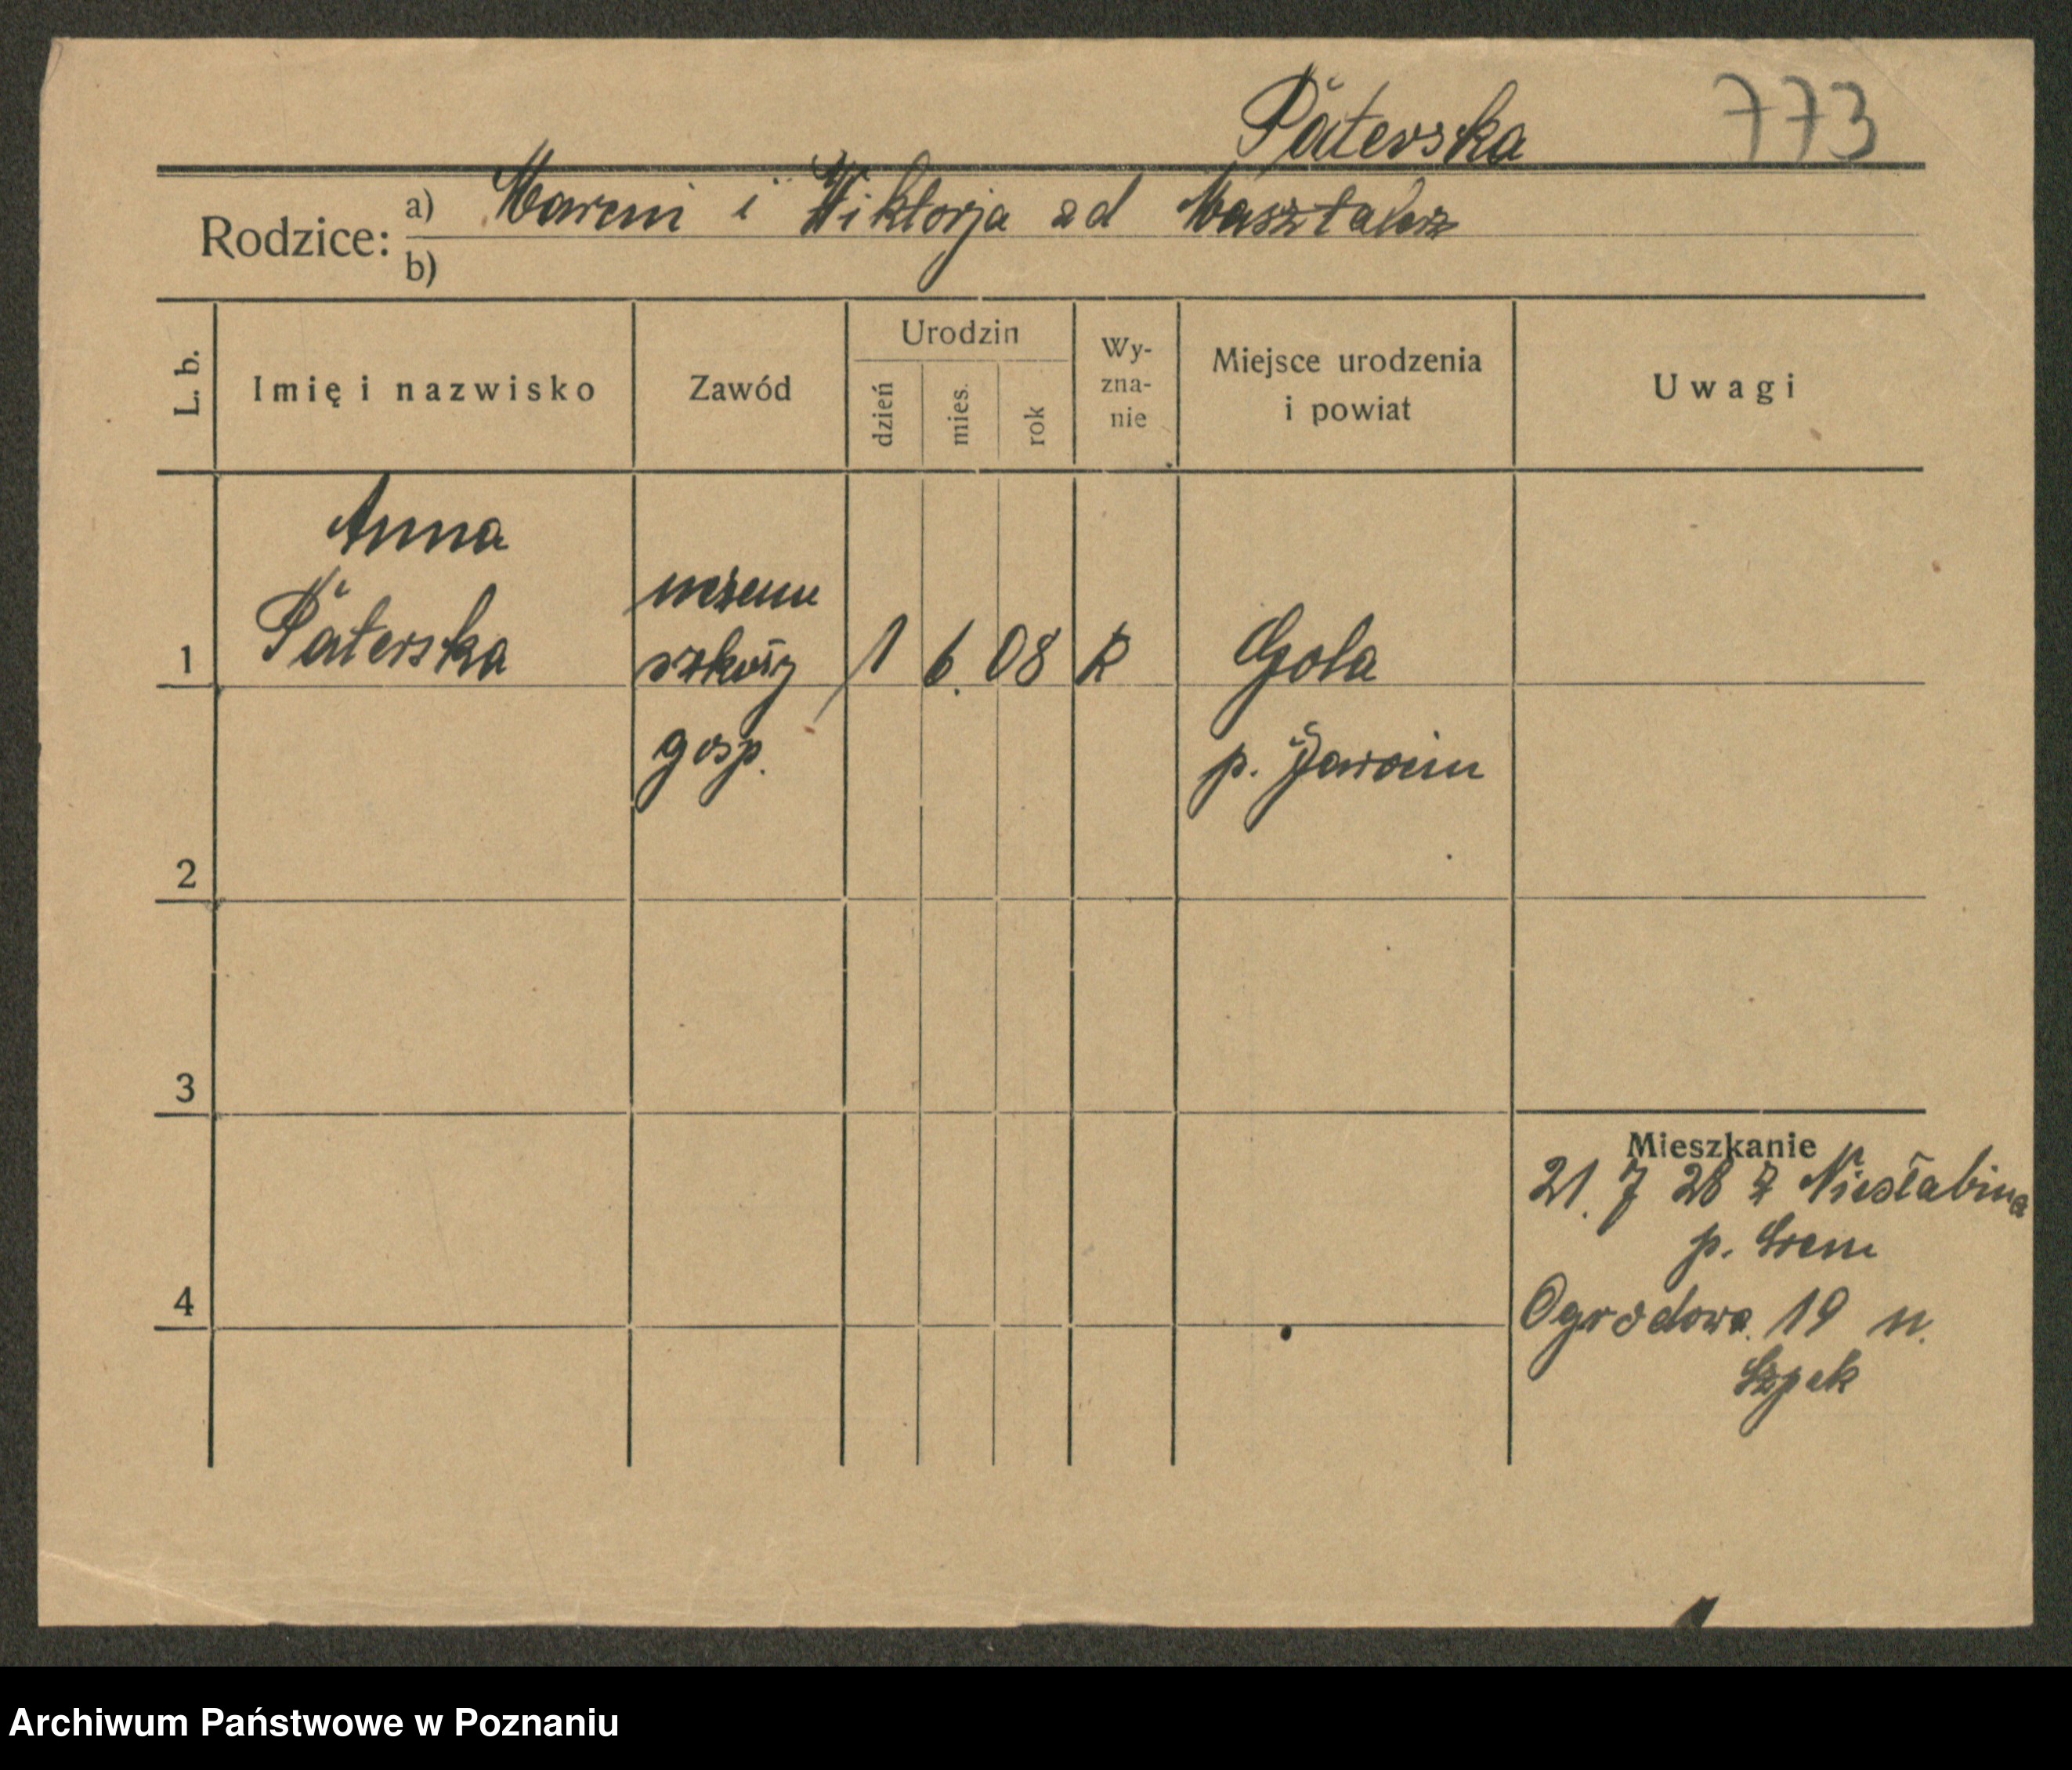 Paterska 773
Rodzice: a) Marcin i Wiktorja od Masztalerz
b)
L. b. Imię i nazwisko Zawód Urodzin dzień mies. rok Wy-zna-nie Miejsce urodzenia i powiat Uwagi
Anna
Paterska
1 1 6. 08 R Gola
gosp.
p. Jarocin
2
3
Mieszkanie
21. 7 28 z Niesłabina
p. Śrem
4
Ogrodowa 19 u.
Szpek
Archiwum Państwowe w Poznaniu